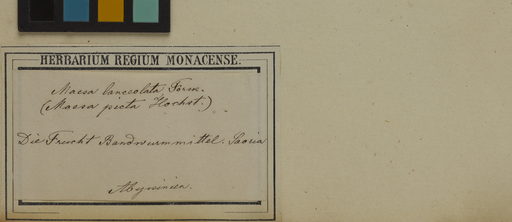 HERBARIUM REGIUM MONACENSE.
Maesa lanceolata, Forsk.
(Maesa picta Hochst.)
Die Frucht Bandwurmmittel. Saoria
Abyssinien.